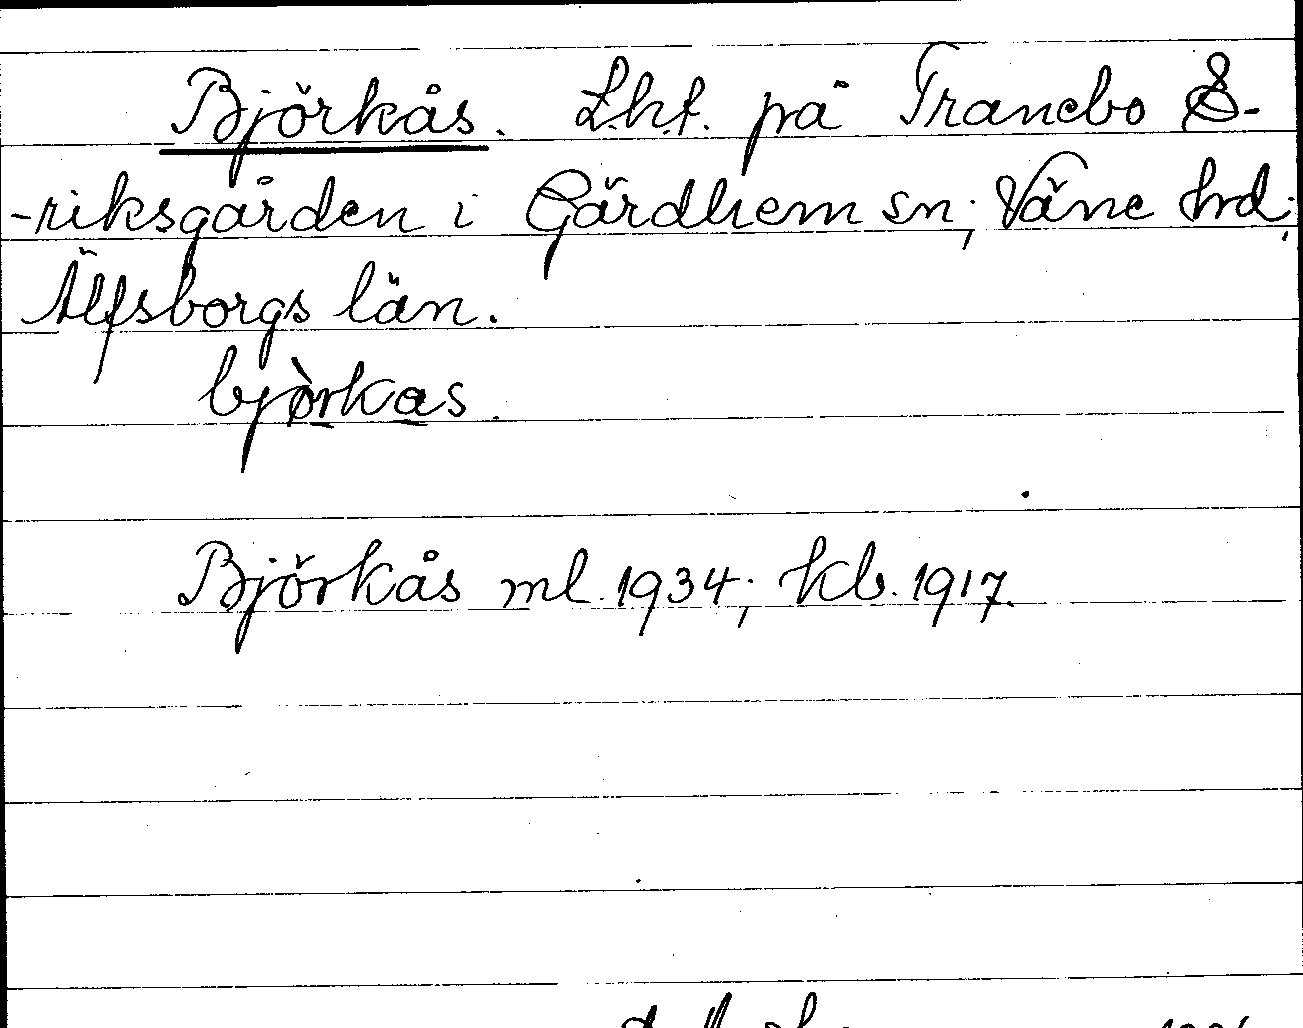 Björkås. Lht. på Tranebo E-
-riksgården i Gärdhem sn; Väne hd;
Älfsborgs län.
bjò̱rka̱s.
Björkås ml. 1934; kb. 1917.